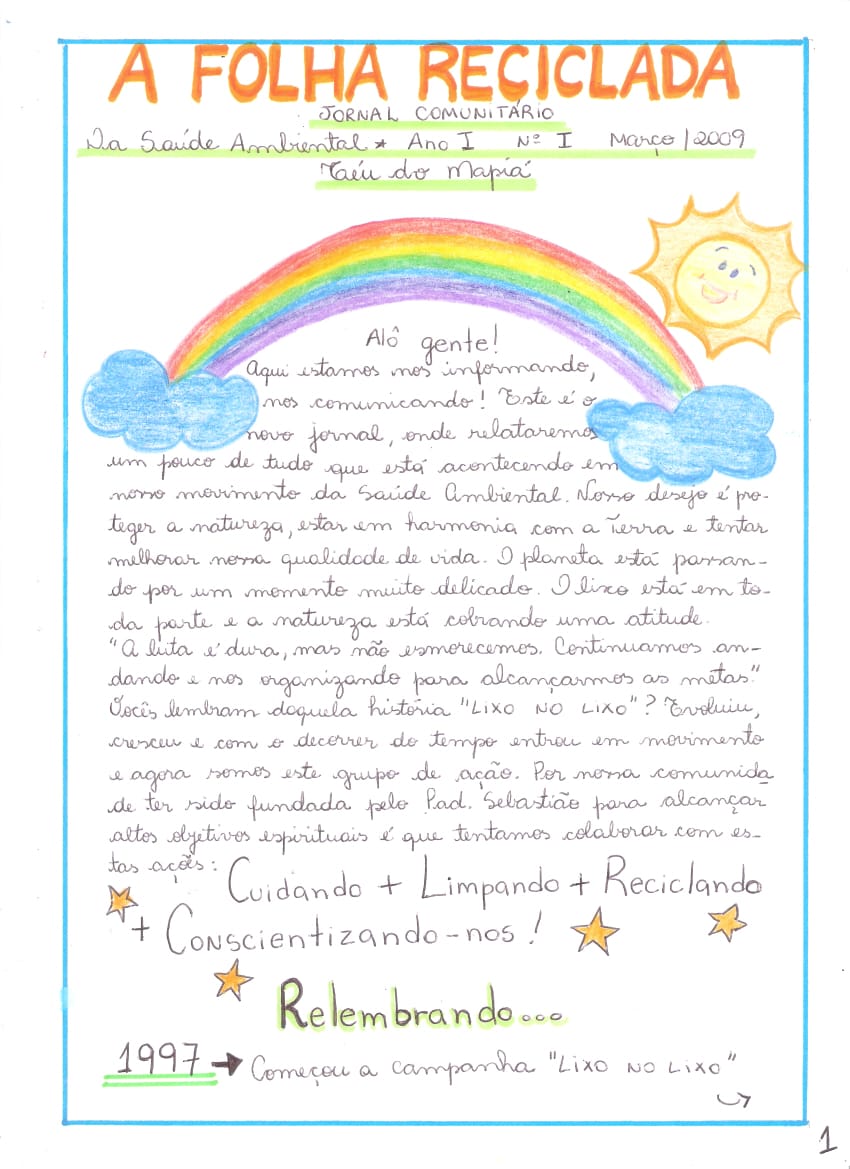 A FOLHA RECICLADA
JORNAL COMUNITÁRIO
Da Saúde Ambiental * Ano I Nº I Março/2009
Céu do Mapiá
Alô gente!
Aqui estamos nos informando,
nos comunicando! Este é o
novo jornal, onde relataremos
um pouco de tudo que está acontecendo em
nosso movimento da Saúde Ambiental. Nosso desejo é pro-
teger a natureza, estar em harmonia com a Terra e tentar
melhorar nossa qualidade de vida. O planeta está passan-
do por um momento muito delicado. O lixo está em to-
da parte e a natureza está cobrando uma atitude.
"A luta é dura, mas não esmorecemos. Continuamos an-
dando e nos organizando para alcançarmos as metas."
Vocês lembram daquela história "LIXO NO LIXO"? Evoluiu,
cresceu e com o decorrer do tempo entrou em movimento
e agora somos este grupo de ação. Por nossa comunida
de ter sido fundada pelo Pad. Sebastião para alcançar
altos objetivos espirituais é que tentamos colaborar com es-
tas ações: Cuidando + Limpando + Reciclando
+ Conscientizando-nos!
Relembrando...
1997 → Começou a campanha "LIXO NO LIXO"
1